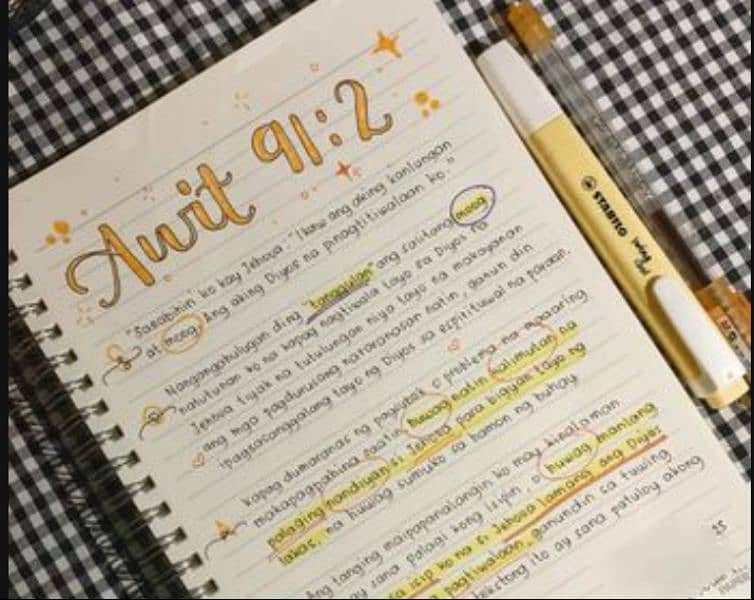 Awit 91:2
"Sasabihin ko kay Jehova: "Ikaw ang aking kanlungan
at moog Ang aking Diyos na pinagtitiwalaan ko."
Nangangahulugan ding "tanggulan" ang salitang moog
natutunan ko na kapag nagtiwala tayo sa Diyos na
Jehova tiyak na tutulungan niya tayo na makayanan
ang mga pagdurusang nararanasan natin, ganun din
ipagsasanggalang tayo ng Diyos sa espirituwal na paraan.
Kapag dumaranas ng pagsubok o problema na maaaring
makapagpahina satin, huwag natin kalimutan na
palaging nandiyan si Jehova para bigyan tayo ng
lakas, na huwag sumuko sa hamon ng buhay
Ang tanging maipapanalangin ko may kinalaman
ay sana palagi kong isipin, o huwag manlang
sa isip ko na si Jehova lamang ang Diyos
pagtiwalaan, ganundin sa tuwing
tekstong ito ay sana patuloy akong
25
STABILO